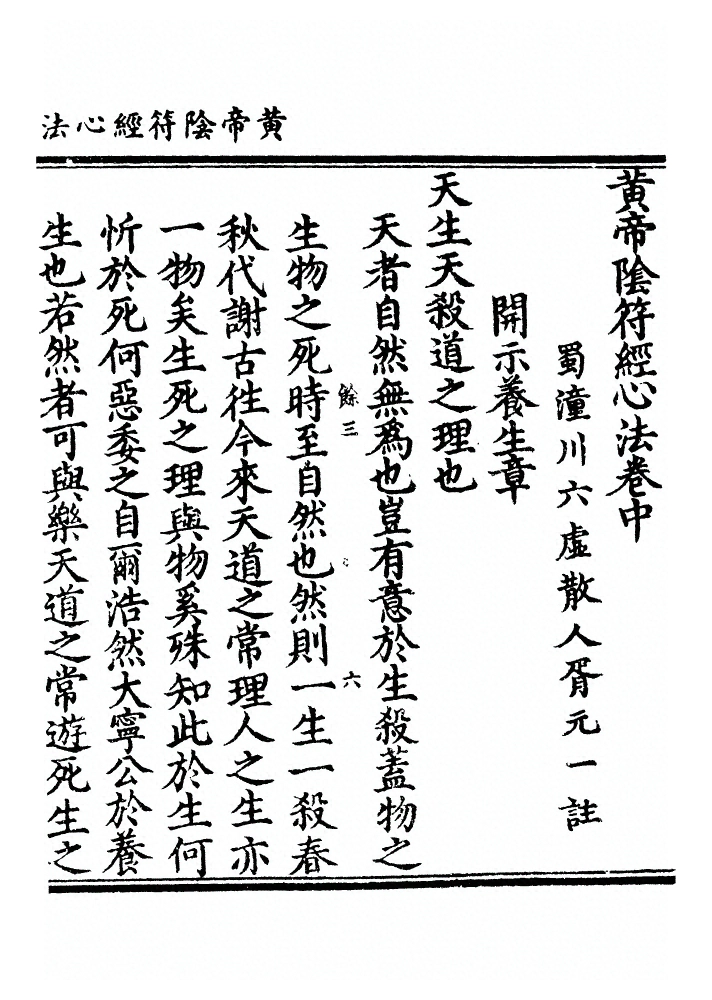 黃帝陰符經心法
黃帝陰符經心法卷中
蜀潼川六虛散人胥元一註
開示養生章
天生天殺道之理也
天者自然無爲也豈有意於生殺蓋物之
餘三 六
生物之死時至自然也然則一生一殺春
秋代謝古徃今來天道之常理人之生亦
一物矣生死之理與物奚殊知此於生何
忻於死何惡委之自爾浩然大寧公於養
生也若然者可與樂天道之常遊死生之